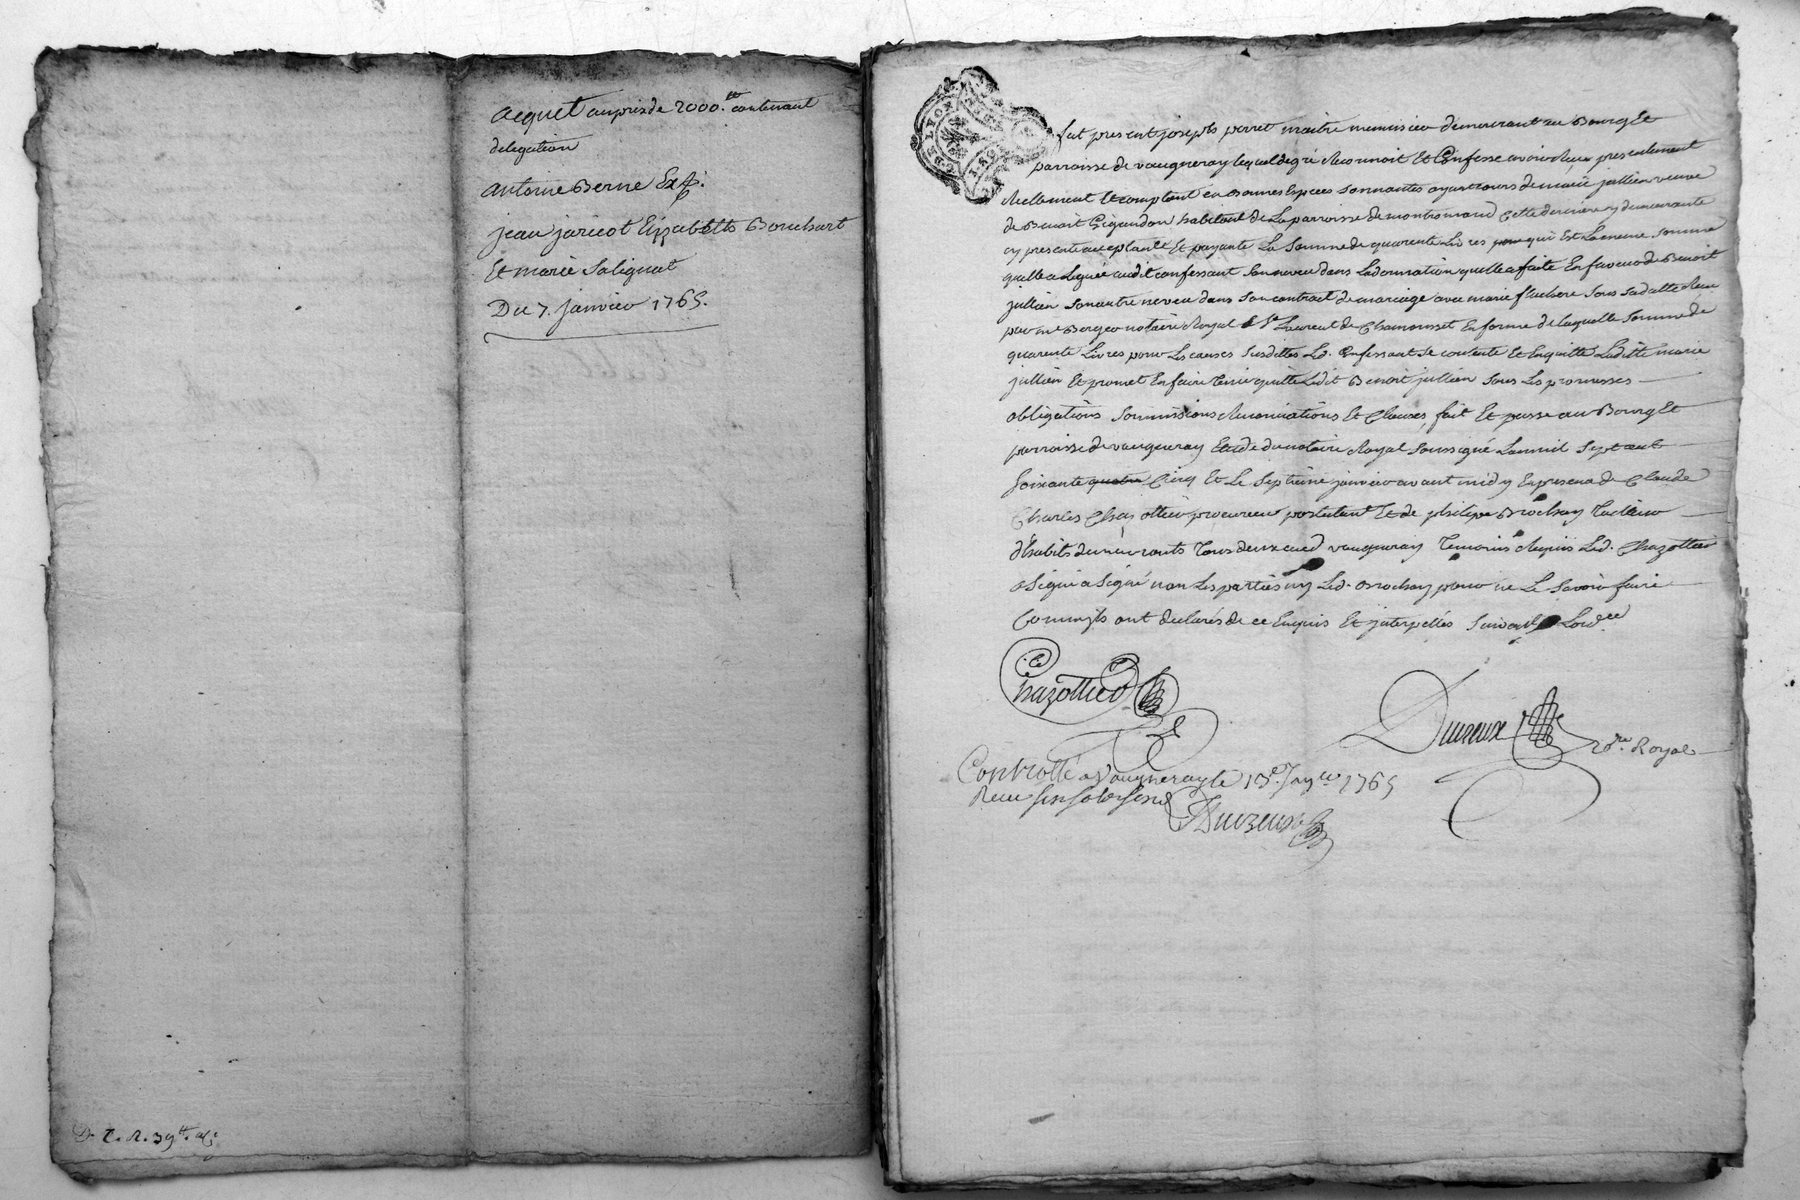 acquet au prix de 2000.tt contenant
delegation
antoine Berne Exp.
jean jaricot Elizabetts Bouchart
Et marie Salignat
Du 7. janvier 1765.
D. C. R. 39tt.
DE LYON
fut present joseph perret maitre menuisier demeurant au Bourg Et
parroisse de vaugneray lequel de gré Reconnoit Et Confesse avoir Reçu presentement
Reellement Et comptant en Bonnes Especes Sonnantes ayant cours de marie jullien veuve
de Benoit Gigandon habitant de La parroisse de montromand Cette derniere y demeurante
cy presente acceptante Et payante La Somme de quarente Livres qui Est La meme Somme
quelle a Leguée audit confessant Son neveu dans La donnation quelle a faite En faveur de Benoit
jullien Son autre neveu dans Son contract de mariage avec marie fluchere Sous Sa datte Reçu
par me Berger notaire Royal a St Laurent de Chamousset En forme de laquelle Somme de
quarente Livres pour Les causes Susdittes Led. Confessant Se contente Et En quitte Laditte marie
jullien Et promet En faire Tenir quitte Ledit Benoit jullien Sous Les promesses
obligations Soumissions Renonciations Et Clauses, fait Et passé au Bourg Et
parroisse de vaugneray Etude du notaire Royal Soussigné Lan mil Sept cent
Soixante quatre Cinq Et Le Septieme janvier avant midy En presence de Claude
Charles Chazottier procureur postulant Et de philipe Brochay Tailleur
d'habits demeurants Tous deux aud. vaugneray Temoins Requis Led. Chazottier
a Signé a Signé non Les parties ny Led. Brochay pour ne Le Savoir faire
Comm'ils ont declarés de ce Enquis Et jnterpellés Suivant Lordce
Chazottier
Duvreux
nore. Royal
Controllé a Vaugneray le 13e. Janvier 1765
Reçu
Duvreux